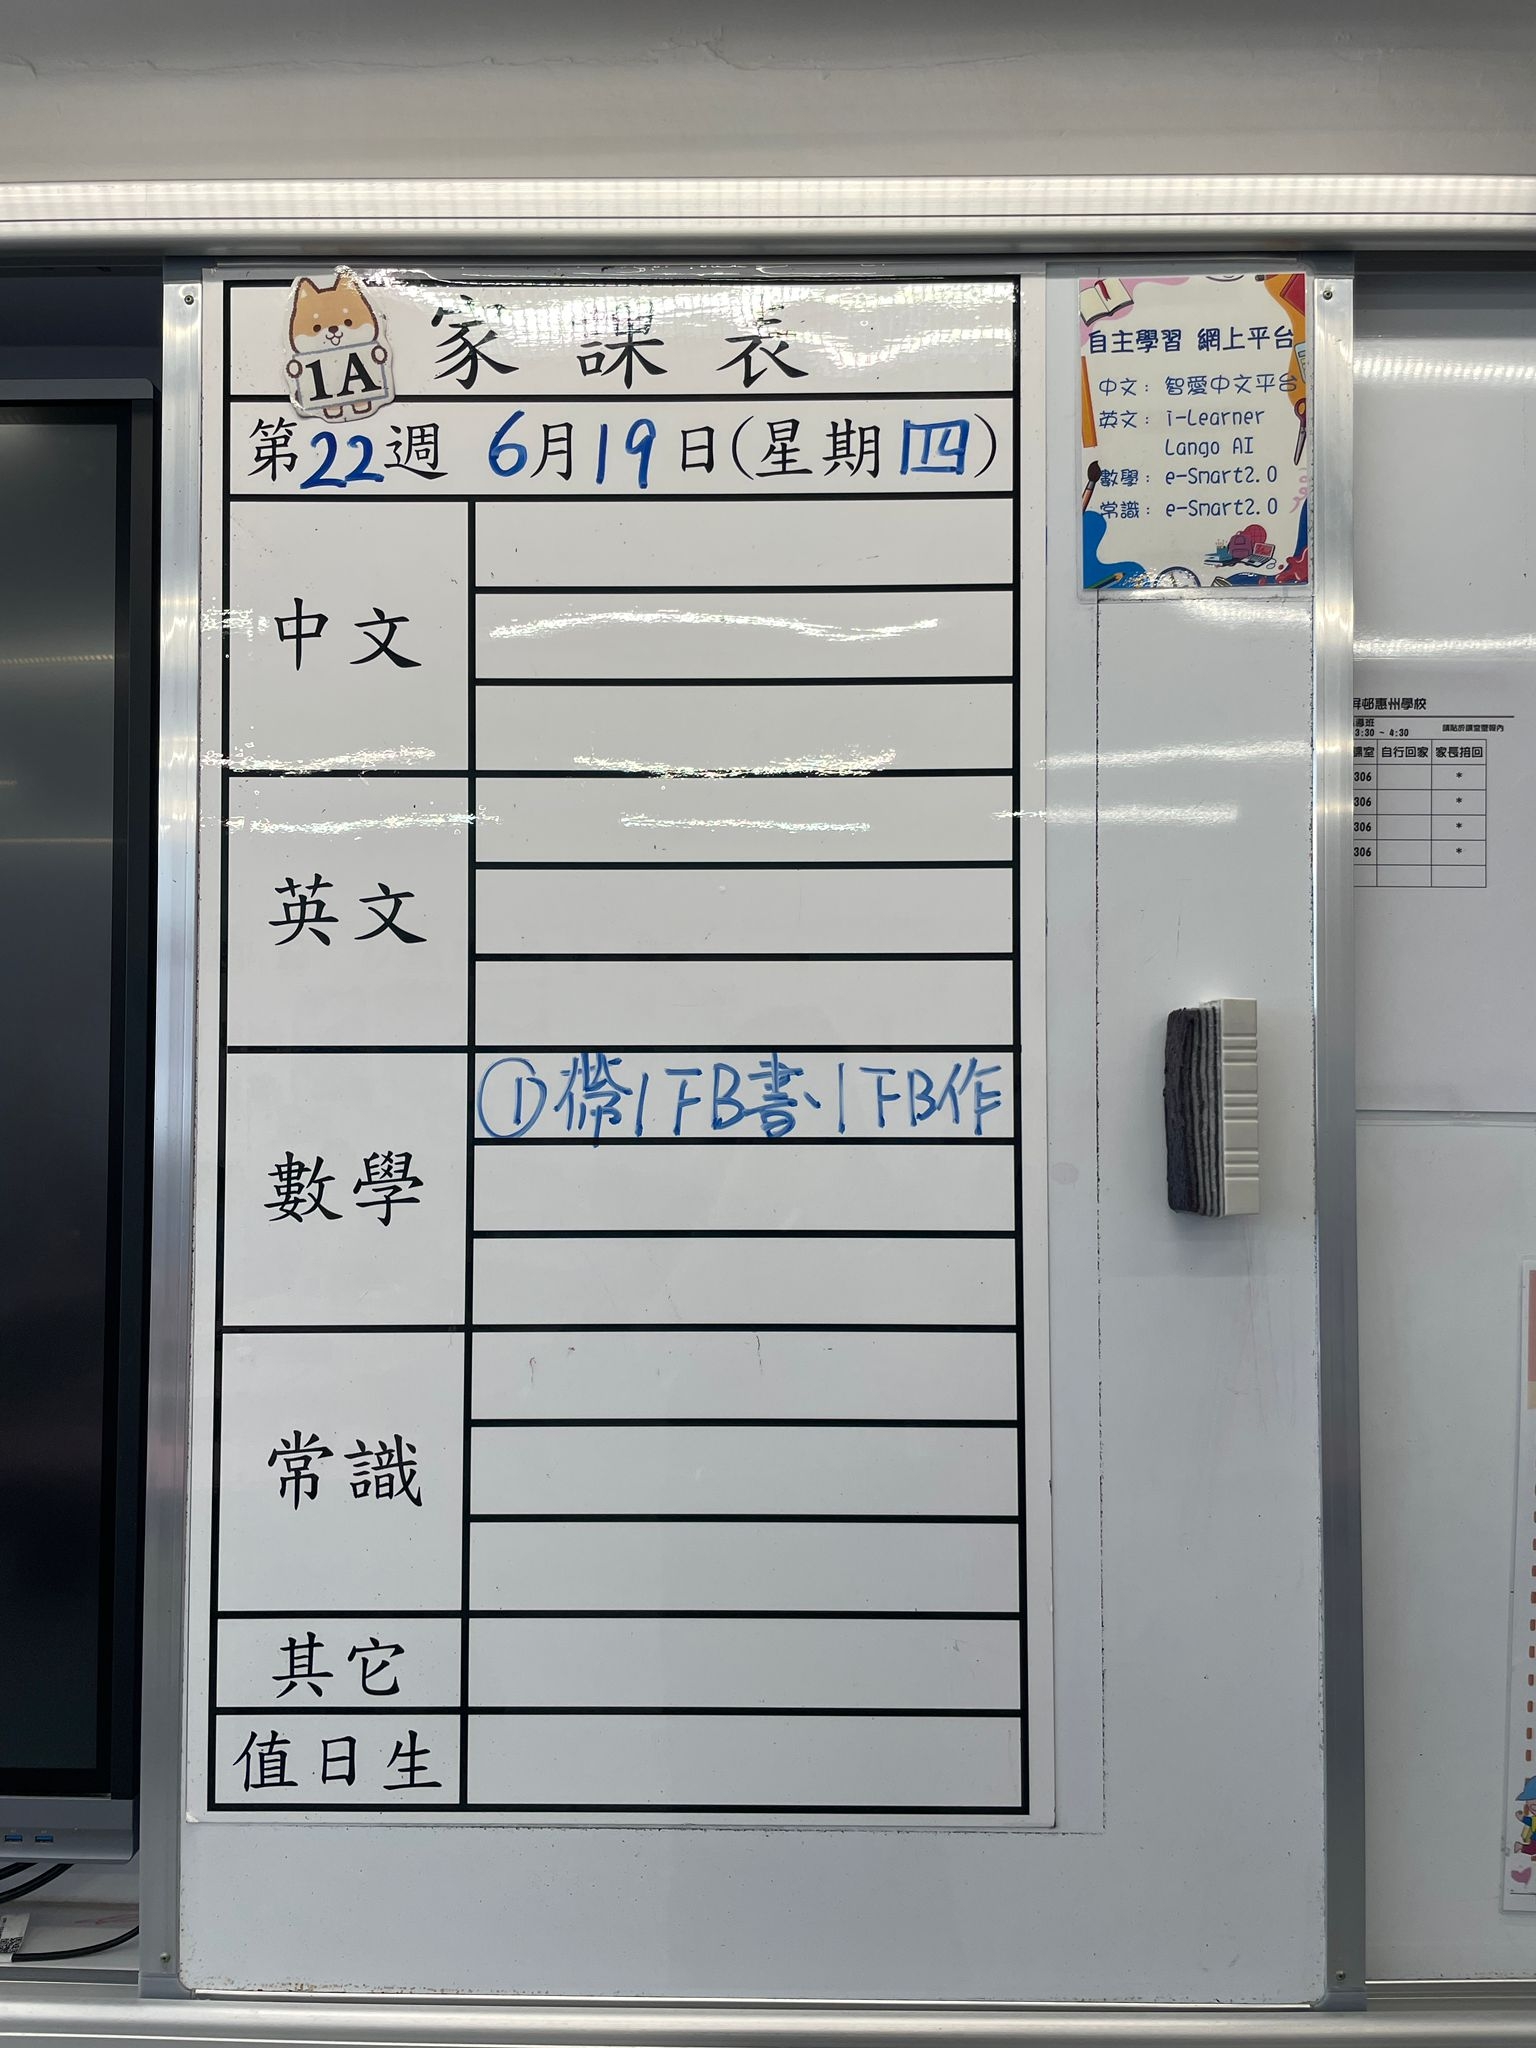 1A 家課表
第22週 6月19日(星期四)
中文
英文
數學
①帶1下B書、1下B作
常識
其它
值日生
自主學習 網上平台
中文：智愛中文平台
英文：i-Learner
Lango AI
數學：e-Smart2.0
常識：e-Smart2.0
屏邨惠州學校
導班
3:30 ~ 4:30
請貼於課室壁報內
課室 自行回家 家長接回
306 *
306 *
306 *
306 *